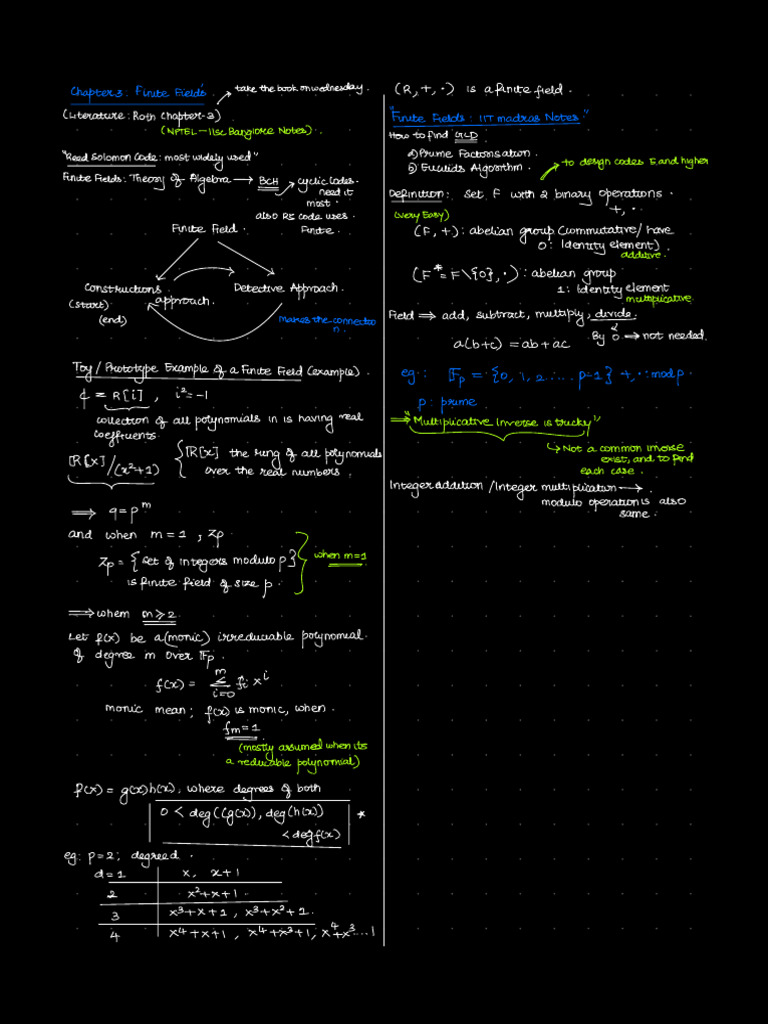 Chapter 3: Finite Fields
take the book on wednesday.
(Literature: Roth Chapter-3)
(NPTEL – IISc Banglore Notes).
"Reed Solomon Code: most widely used"
Finite Fields: Theory of Algebra → BCH
cyclic codes.
need it
most.
also RS code uses
Finite.
Finite Field.
Constructions
approach.
Detective Approach.
(start)
(end)
makes the connectio
n.
Toy / Prototype Example of a Finite Field (example).
¢ = R[i] , i² = -1
collection of all polynomials in is having real
coefficients.
R[x]/(x²+1) { R[x] the rung of all polynomials
over the real numbers.
⇒ q = p^m
and when m = 1 , Zp
Zp = { set of integers modulo p }
is finite field of size p.
when m=1
⟹ whem m ≥ 2.
Let f(x) be a (monic) irreducuable polynomial.
of degree m over Fp.
f(x) = Σ_{i=0}^{m} fi x^i
monic mean; f(x) is monic, when.
fm = 1
(mostly assumed when its
a reducable polynomial)
f(x) = g(x)h(x), where degrees of both
0 < deg((g(x)), deg(h(x)) *
< deg f(x)
eg: p=2; degree d.
d=1 | x, x+1
2 | x²+x+1.
3 | x³+x+1 , x³+x²+1.
4 | x⁴+x+1 , x⁴+x³+1, x⁴+x³....1
(R, +, ·) is a finite field.
"Finite Fields: IIT madras Notes"
How to find GCD
a) Prime Factorisation.
b) Euclids Algorithm.
to design codes 5 and higher
Definition: Set F with 2 binary operations.
+, ·
(very Easy)
(F, +): abelian group (commutative/ have
0: Identity element)
additive.
(F* = F\{0}, ·): abelian group
1: Identity element
multiplicative.
Field ⟹ add, subtract, multiply, divide.
By 0 → not needed.
a(b+c) = ab + ac
eg.: Fp = {0, 1, 2..... p-1} +, · : mod p
p: prime
⟹ "Multiplicative Inverse is trucky"
Not a common inverse
exist, and to find
each case.
Integer addition / Integer multiplication ⟶.
modulo operation is also
same.